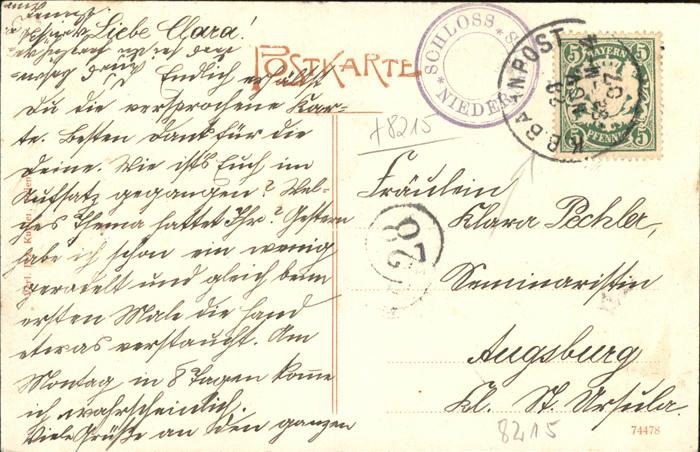 Liebe Clara!
Endlich erhältst
Du die versprochene Kar-
te. Besten Dank für die
Deine. Wie ist's Euch im
Aufsatz gegangen? Wel-
ches Thema hattet Ihr? Gestern
habe ich schon ein wenig
geradelt und gleich beim
ersten Male die Hand
etwas verstaucht. Am
Montag in 8 Tagen komme
ich wahrscheinlich.
Viele Grüße an den ganzen
POSTKARTE
SCHLOSS
NIEDER
K.B.BAHNPOST
BAYERN
5 5
5 5
PFENNIG
+8215
Fräulein
Klara Pechler,
Seminaristin
Augsburg
Kl. St. Ursula.
8215
74478